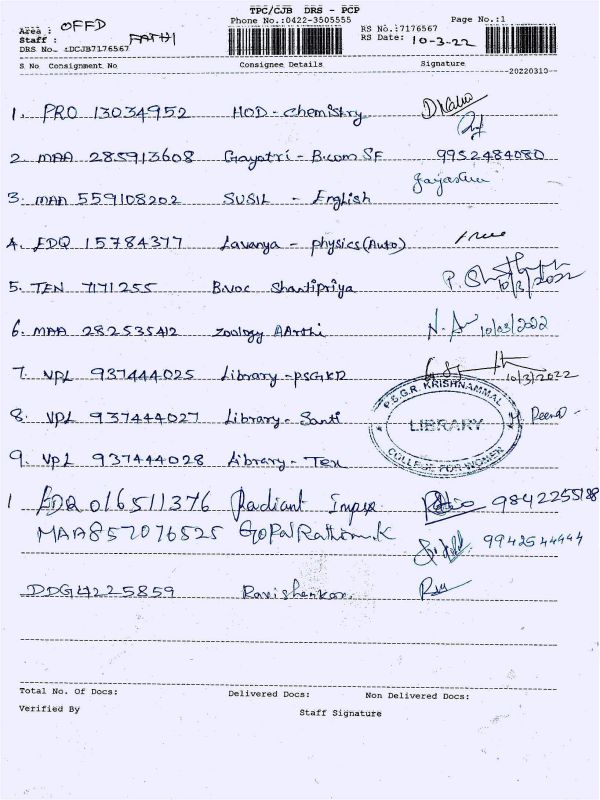 TPC/CJB DRS - PCP
Phone No.:0422-3505555 Page No.:1
Area : OFFD
Staff : FATHI
DRS No. :DCJB7176567
RS No.:7176567
RS Date: 10-3-22
S No Consignment No Consignee Details Signature
20220310
1. PRO 13034952 HOD - chemistry
2. MAA 285913608 Gayatri - B.com SF 9952484080
3. MAA 559108202 SUSIL - English
4. EDQ 15784377 Lavanya - physics (Auto)
5. TEN 7171255 Bvoc Shantipriya 10/3/2022
6. MAA 282535412 zoology AArthi 10/03/2022
7. VPL 937444025 Library - PSGKR 10/3/2022
P.S.G.R. KRISHNAMMAL
LIBRARY
COLLEGE FOR WOMEN
8. VPL 937444027 Library - Santi
9. VPL 937444028 Library - Tex
1 EDQ 016511376 Radiant Impex 9842255188
MAA857076525 Gopal Rathinam.K 9942544444
DDG4225859 Ravishenkar
Total No. Of Docs: Delivered Docs: Non Delivered Docs:
Verified By Staff Signature